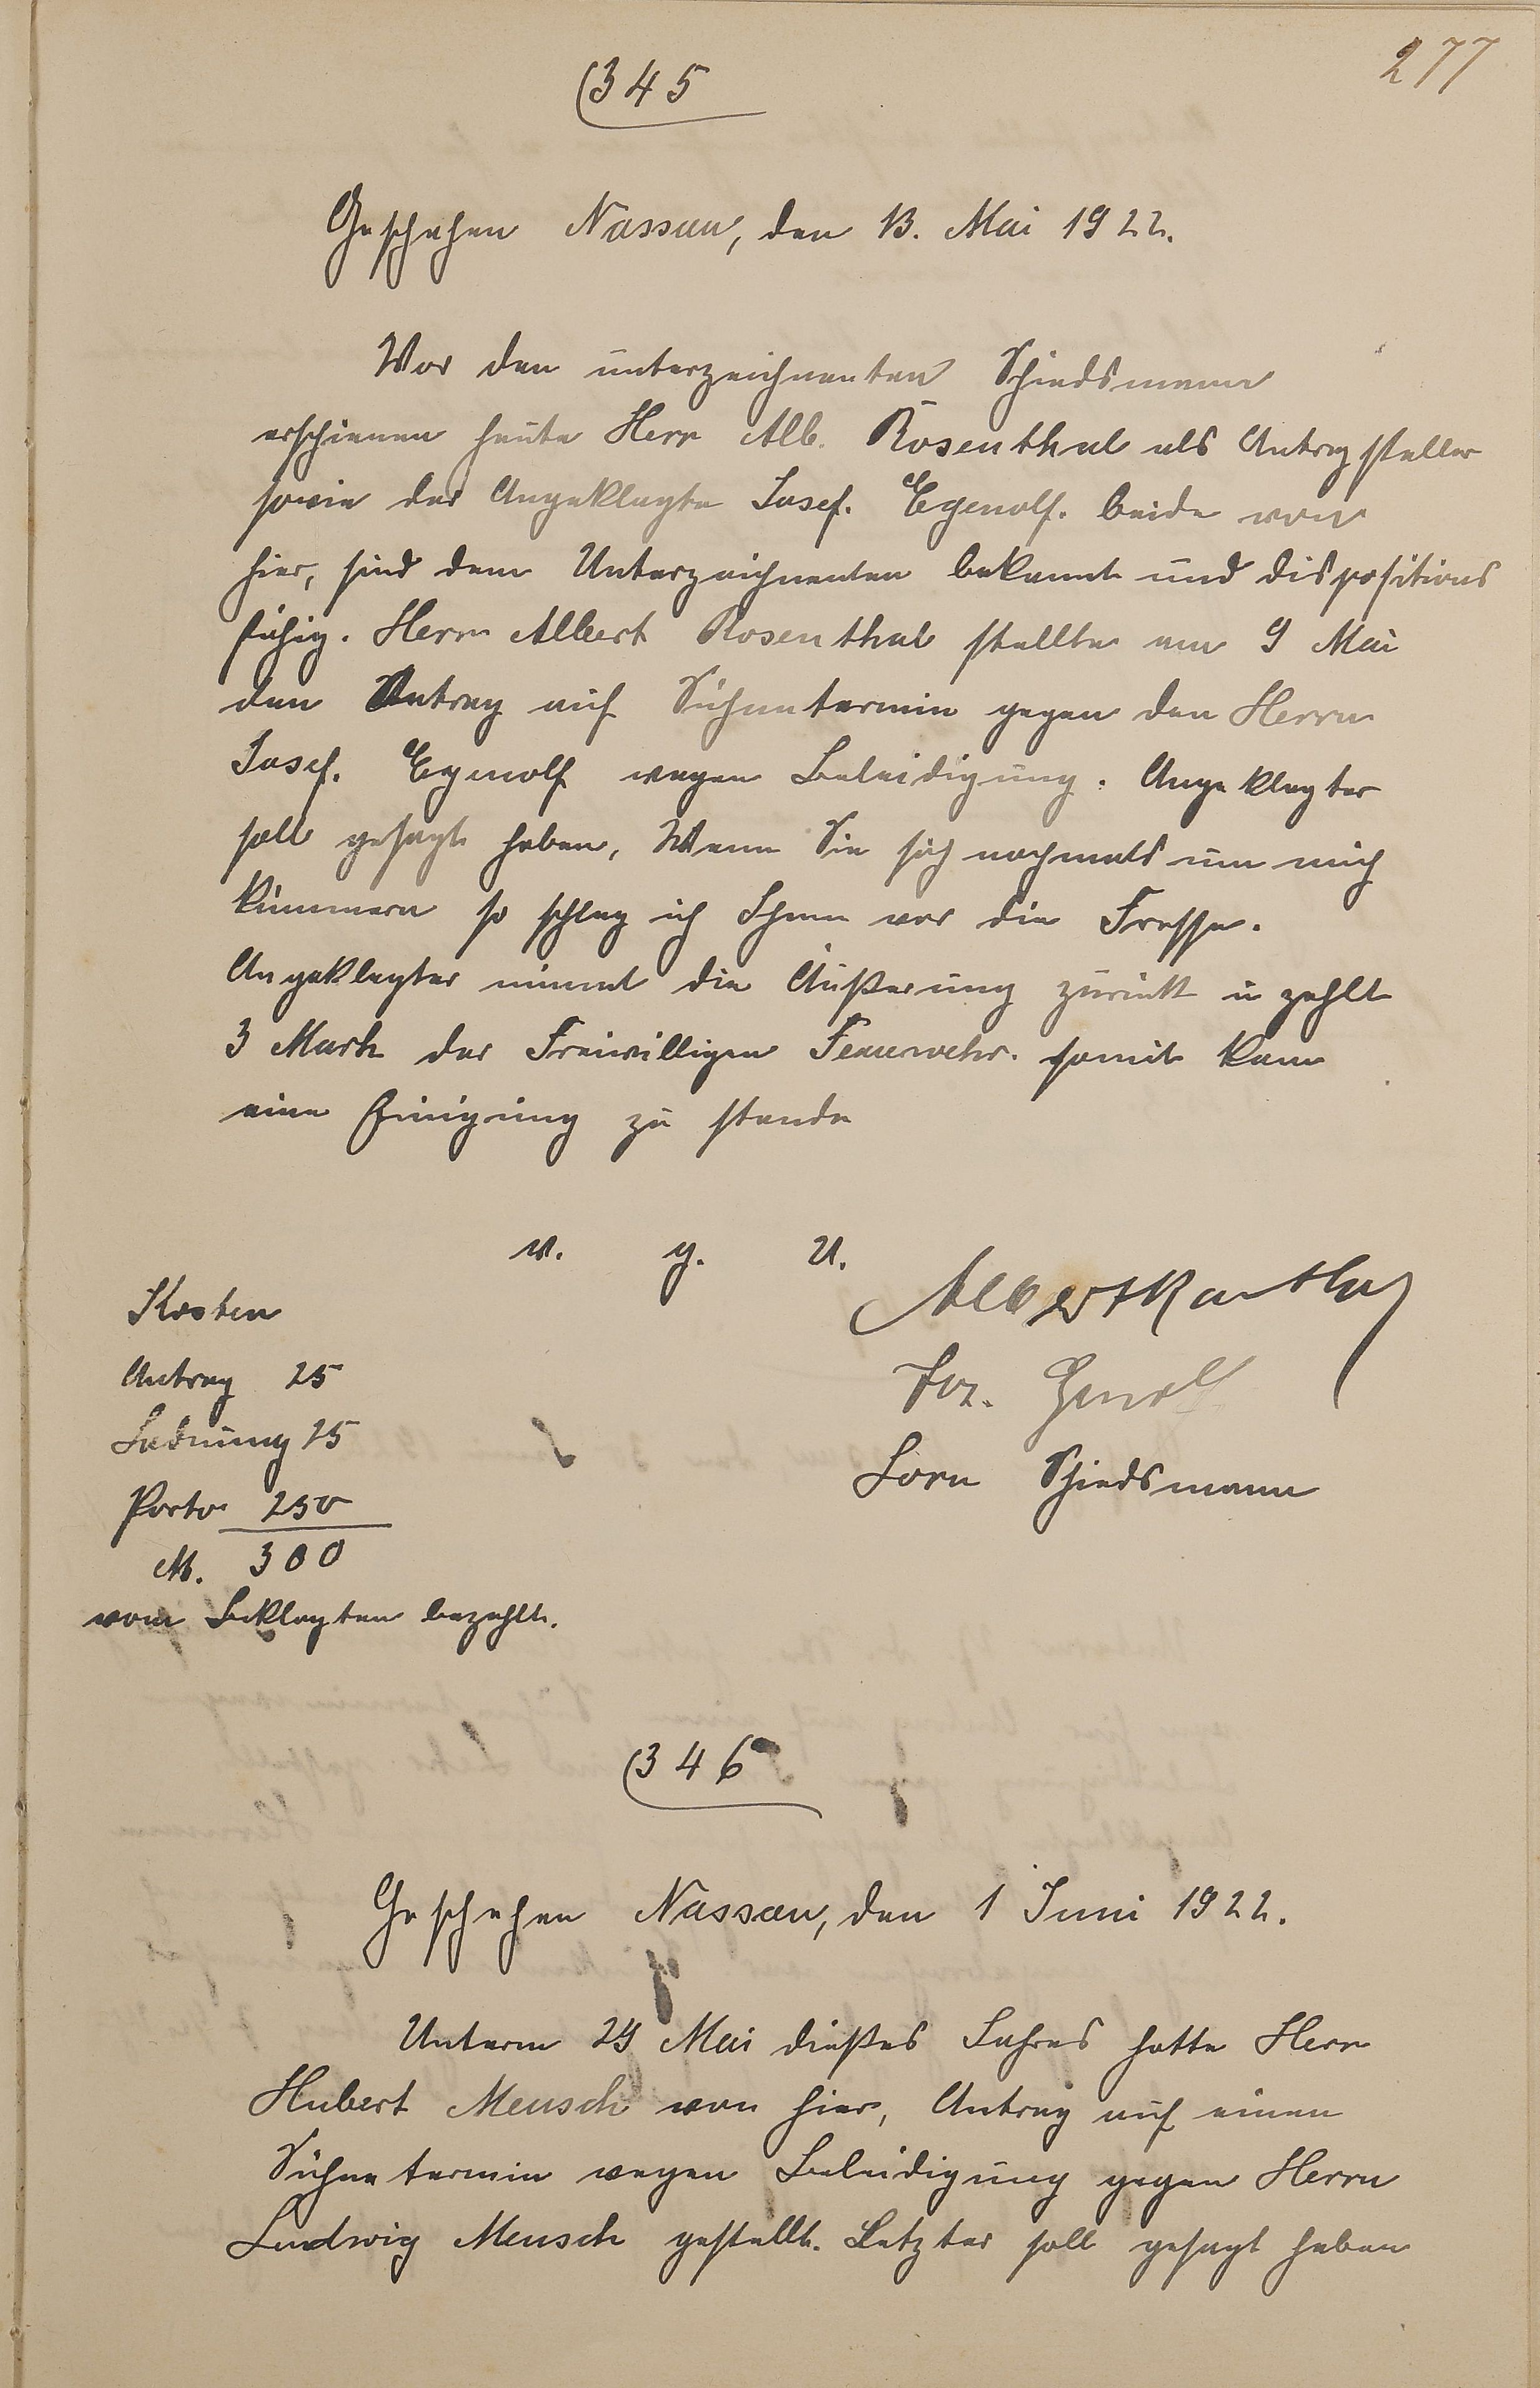 277
(345
Geschehen Nassau, den 13. Mai 1922.
Vor den unterzeichnenten Schiedsmann
erschienen heute Herr Alb. Rosenthal als Antragsteller
sowie der Angeklagte Josef. Egenolf. beide von
hier, sind dem Unterzeichnenten bekannt und dispositions
fähig. Herr Albert Rosenthal stellte am 9 Mai
den Antrag auf Sühnetermin gegen den Herrn
Josef. Egenolf wegen Beleidigung. Angeklagter
soll gesagt haben, Wenn Sie sich nochmals um mich
kümmern so schlag ich Ihnen vor die Fresse.
Angeklagter nimmt die Äußerung zurück u zahlt
3 Mark der Freiwilligen Feuerwehr. somit kam
eine Einigung zu stande
v. g. U.
Albert Rosenthal
Jos. Egenolf
Lorn Schiedsmann
Kosten
Antrag 25
Ladnung 25
Porto 250
M. 300
vom Beklagten bezahlt.
(346
Geschehen Nassau, den 1 Juni 1922.
Unterm 29 Mai dießes Jahres hatte Herr
Hubert Meusch von hier, Antrag auf einen
Sühnetermin wegen Beleidigung gegen Herrn
Ludwig Meusch gestellt. Letzter soll gesagt haben